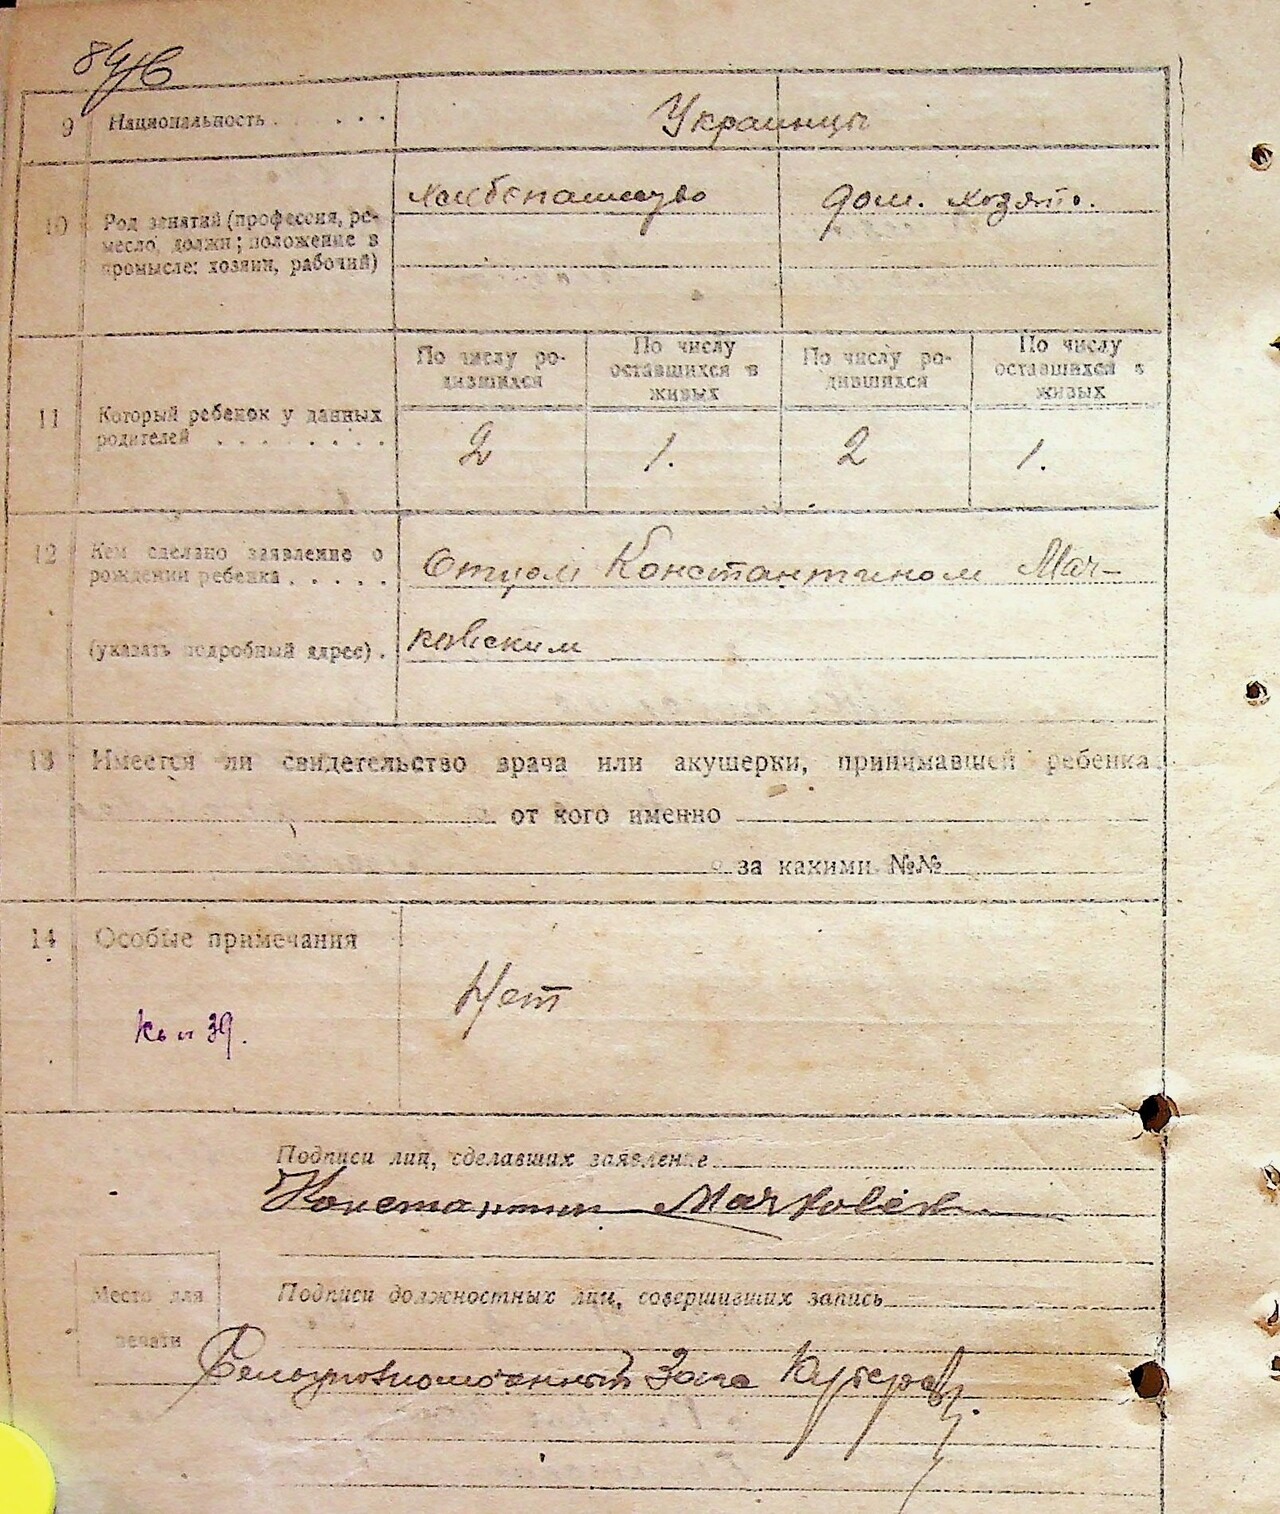 9 Национальность . . . . . Украинцы
10 Род занятий (профессия, ре-
месло, должн; положение в
промысле: хозяин, рабочий)
хлебопашество дом. хозяй.
11 Который ребенок у данных
родителей . . . . . . . .
По числу ро-
дившихся
По числу
оставшихся в
живых
По числу ро-
дившихся
По числу
оставшихся в
живых
2 1. 2 1.
12 Кем сделано заявление о
рождении ребенка . . . . .
(указать подробный адрес) .
Отцом Константином Мач-
ковским
13 Имеется ли свидетельство врача или акушерки, принимавшей ребенка
от кого именно
за какими №№
14 Особые примечания
Нет
39.
Подписи лиц, сделавших заявление
Константин Мачковск
Место для
печати
Подписи должностных лиц, совершивших запись
Загса